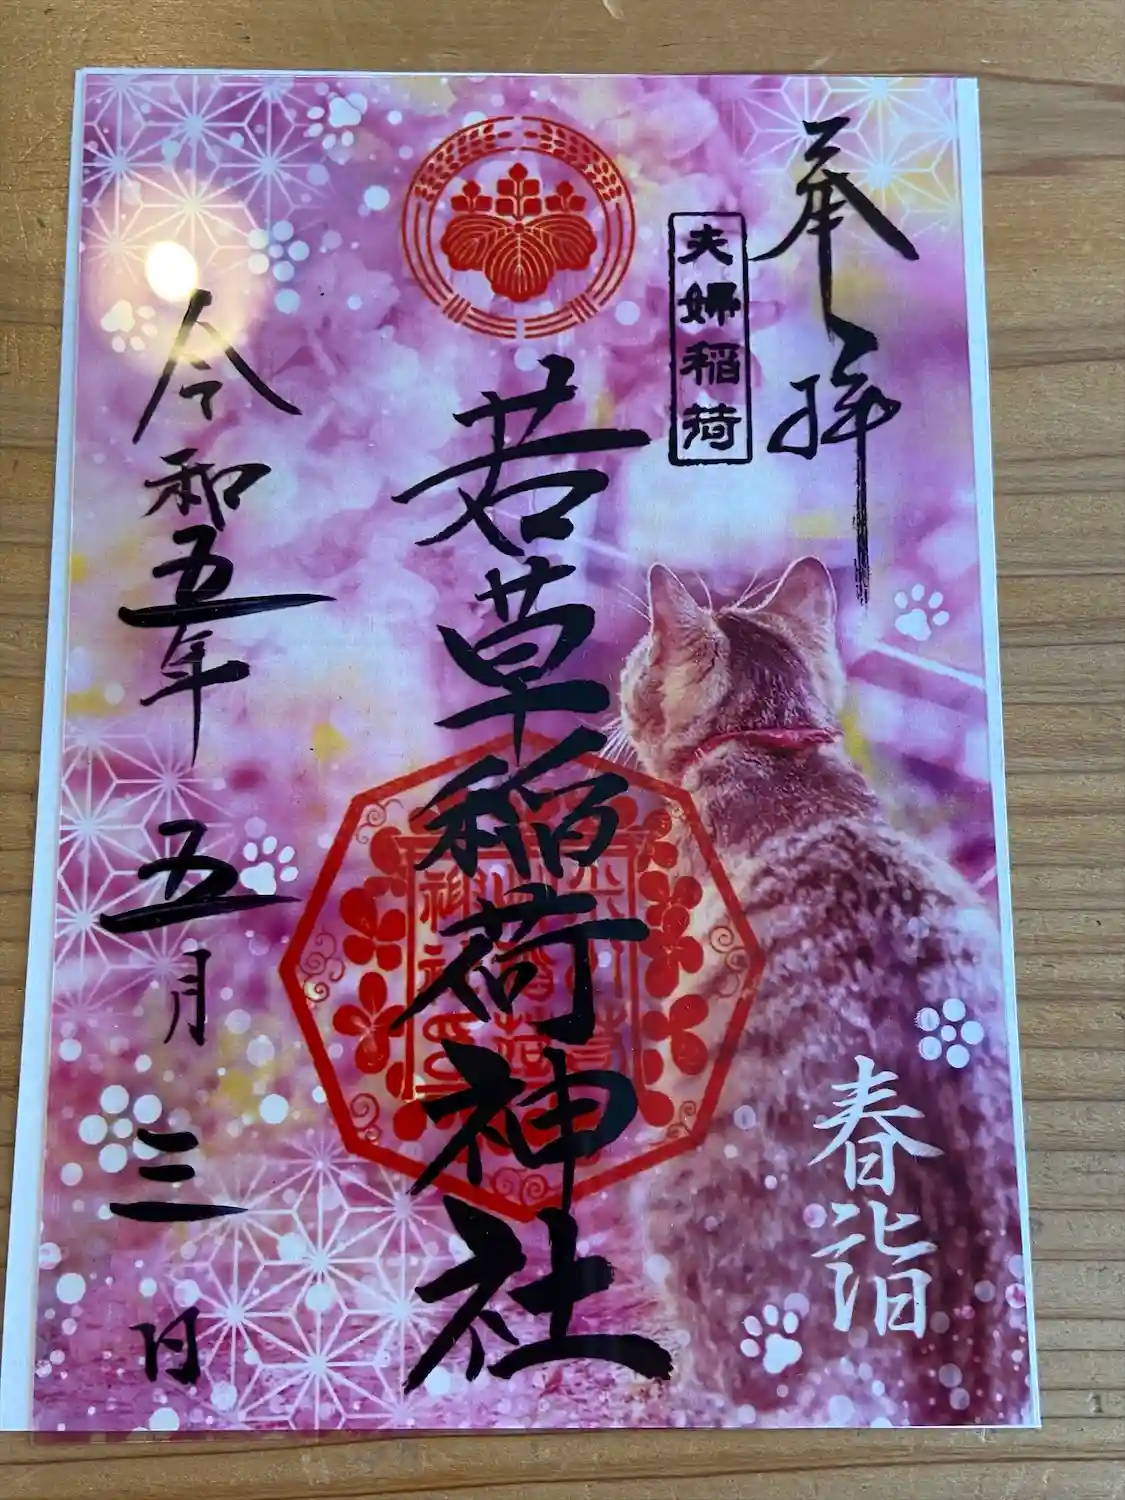 奉拝
夫婦稲荷
若草稲荷神社
春詣
令和五年五月三日